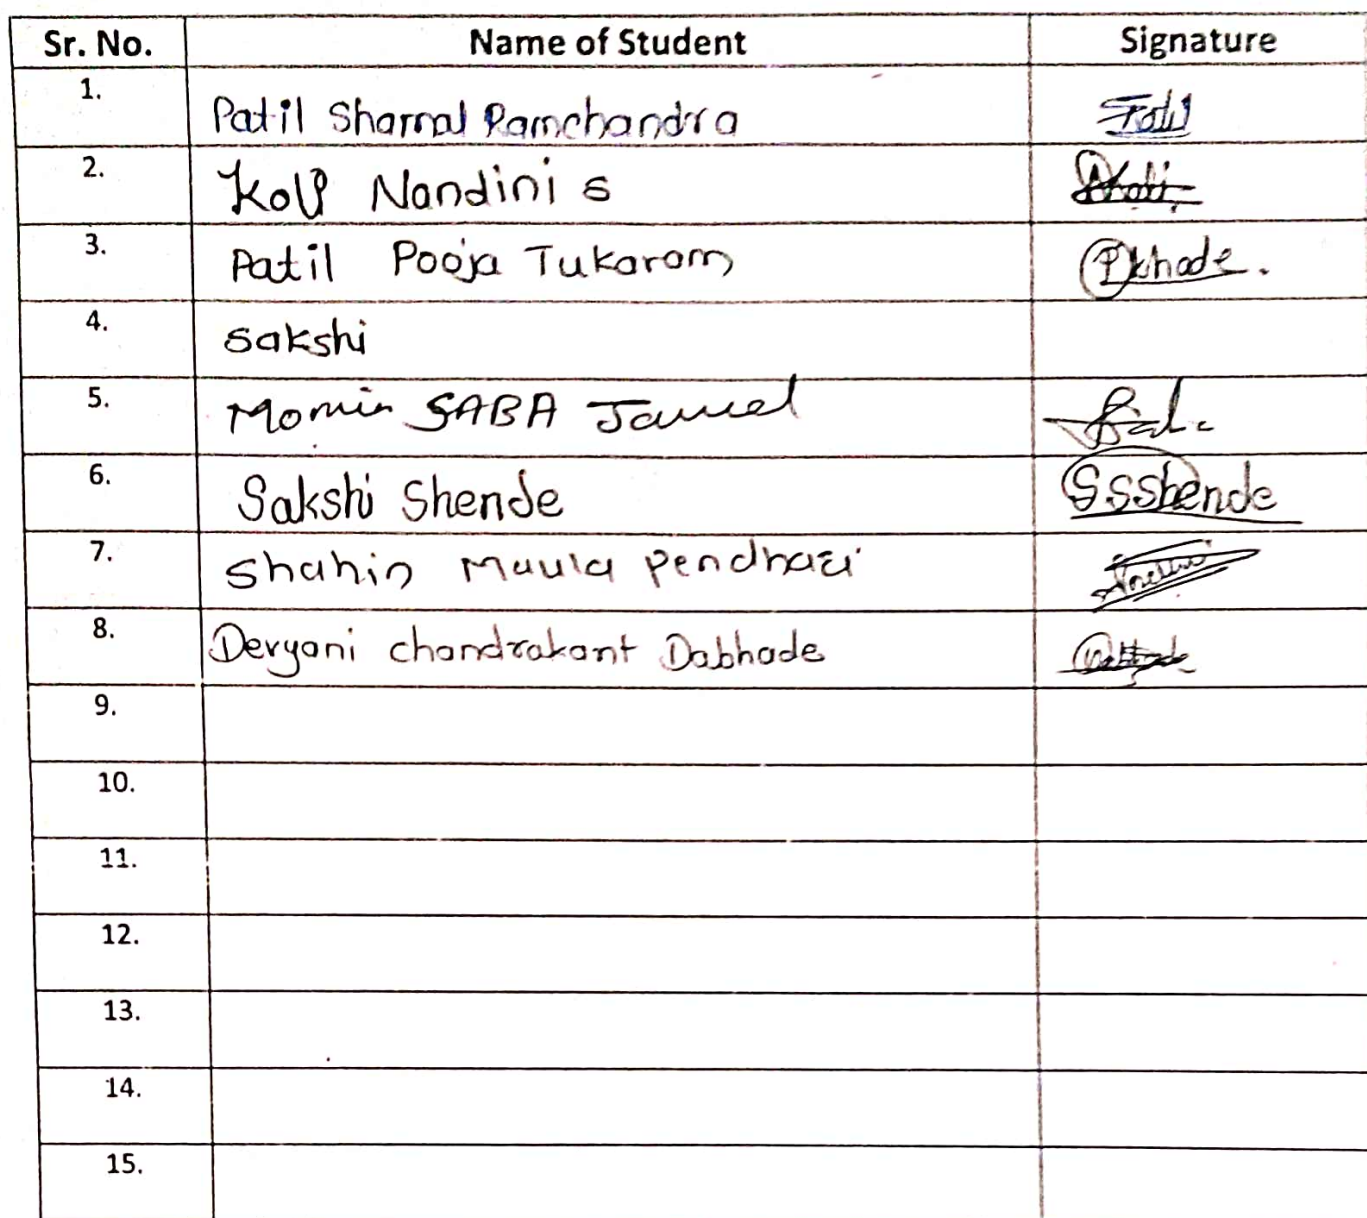 Sr. No. Name of Student Signature
1. Patil Shamal Ramchandra Patil
2. Koli Nandini s
3. Patil Pooja Tukaram Pkhade.
4. Sakshi
5. Momin SABA Jameel
6. Sakshi Shende S.S.Shende
7. Shahin Maula Pendhari
8. Devyani chandrakant Dabhade
9.
10.
11.
12.
13.
14.
15.